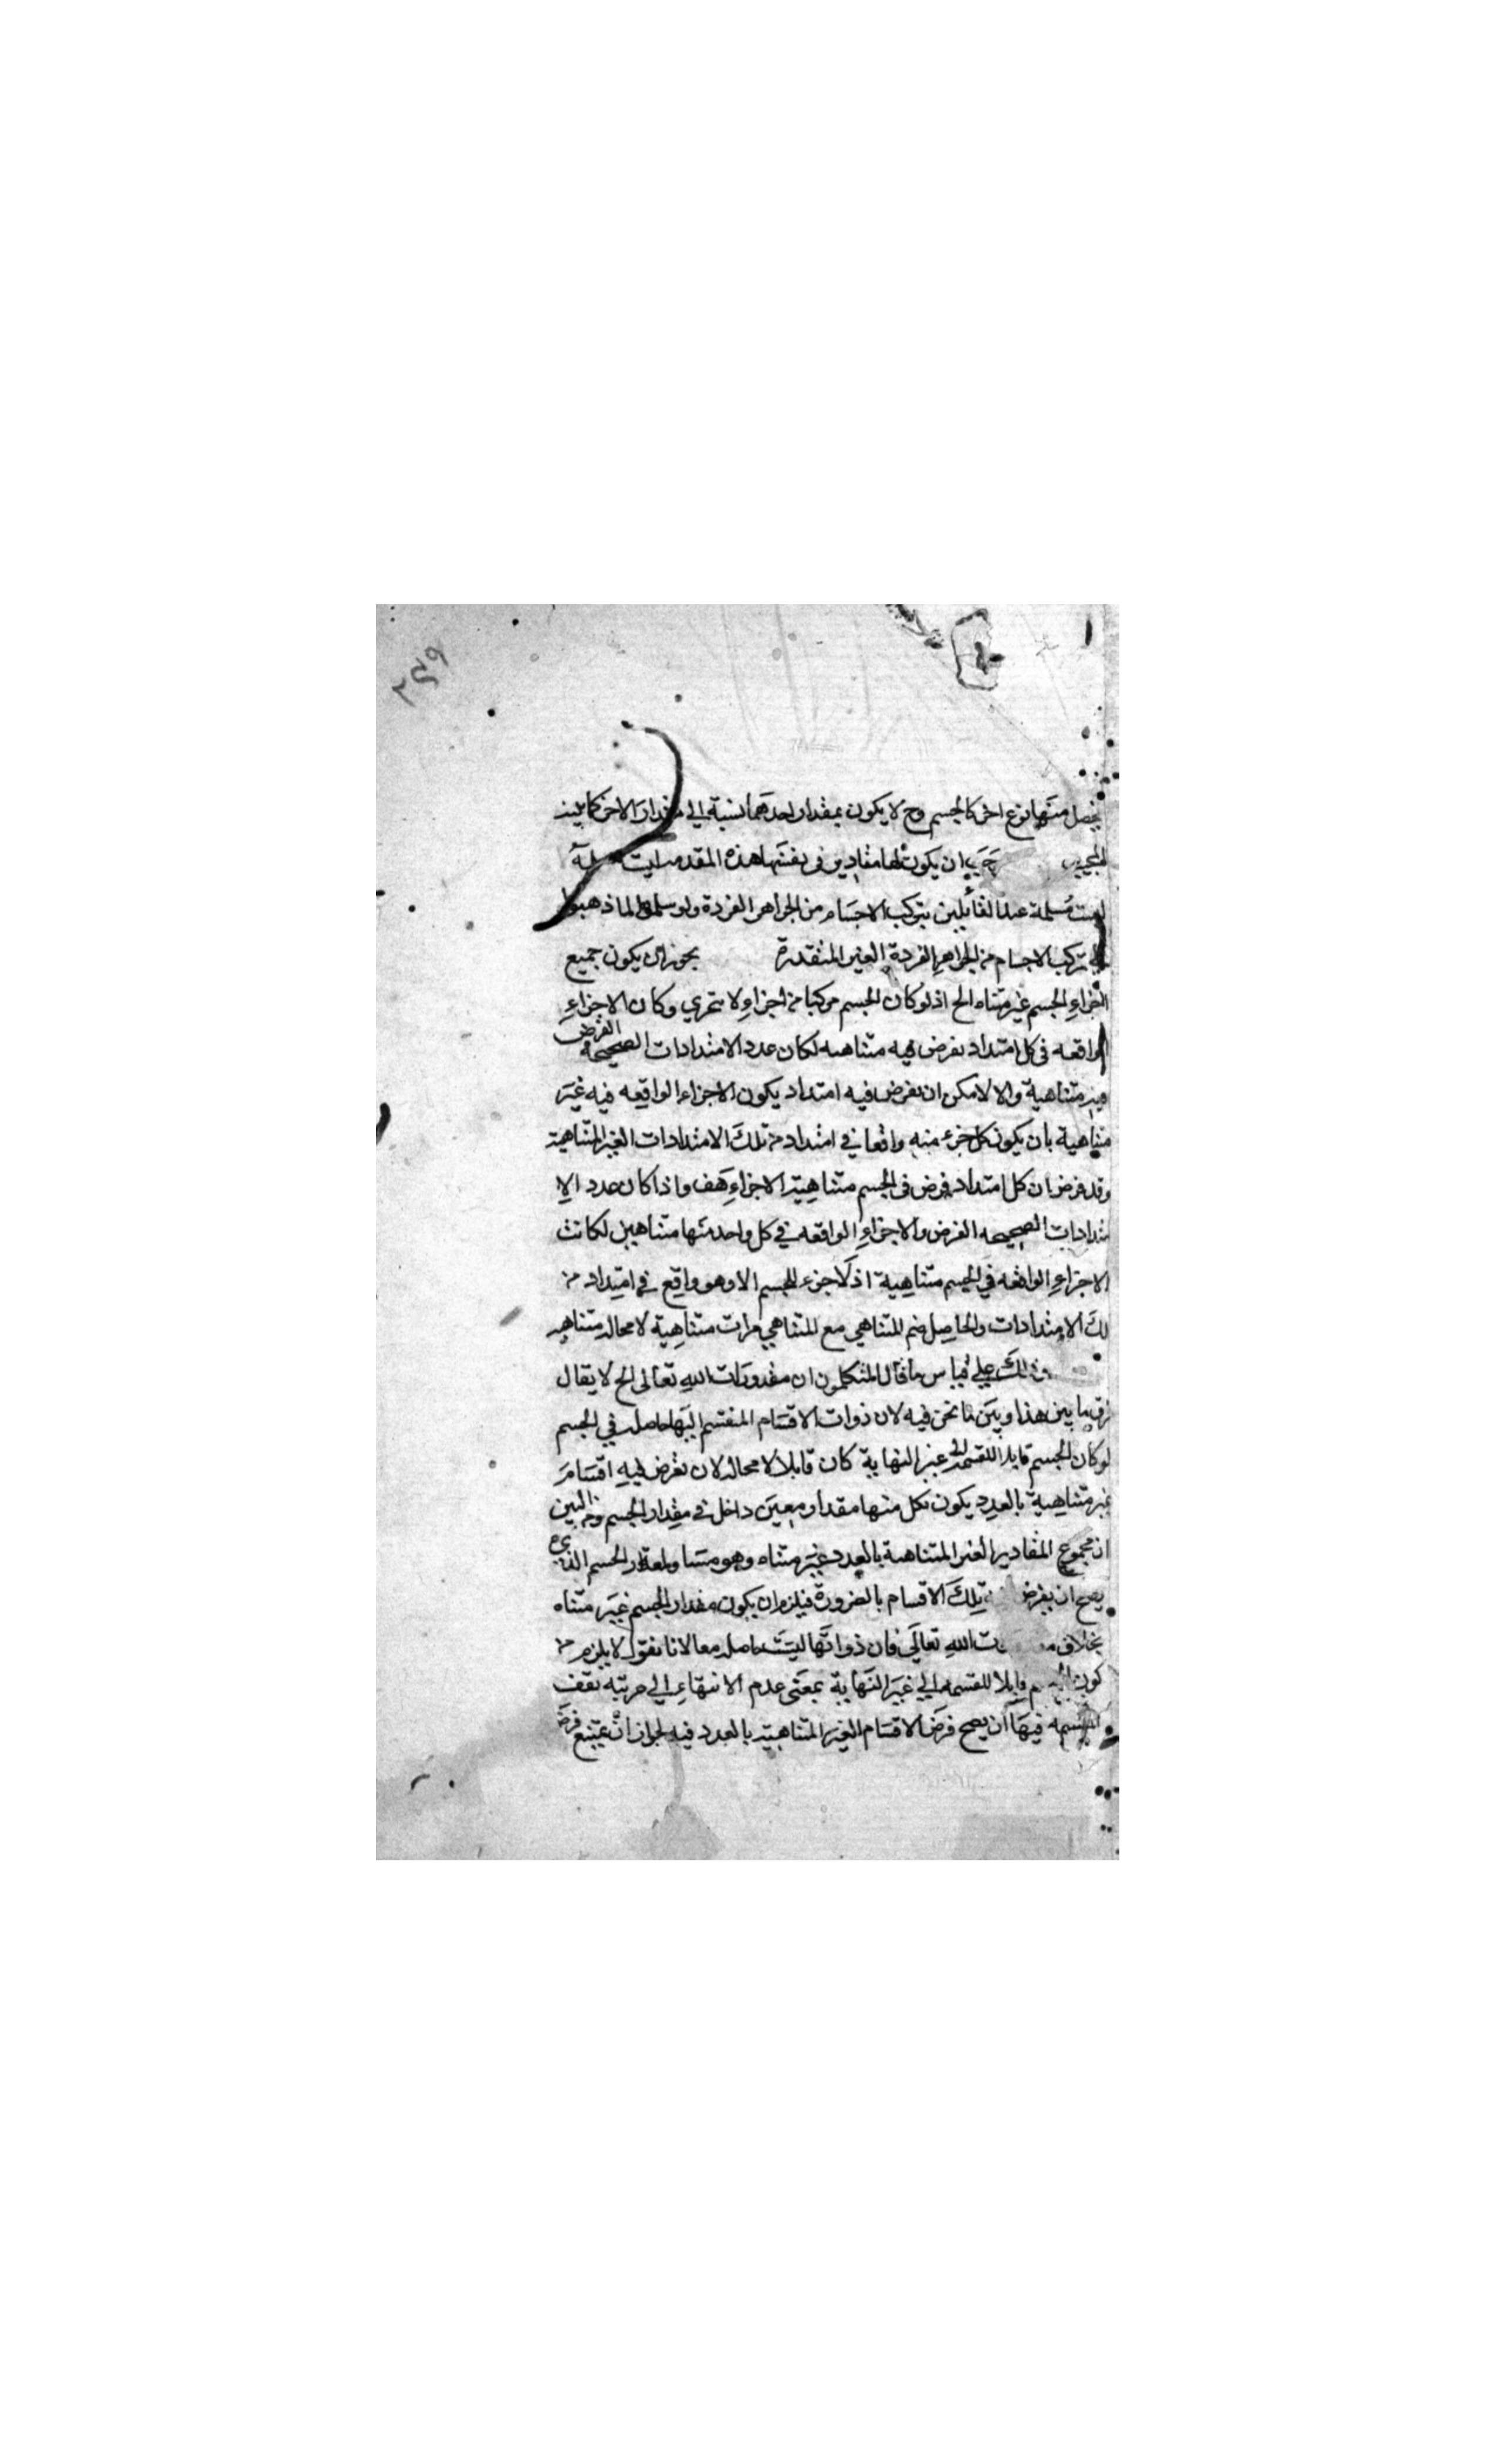 ٢٥٩
يحصل منها نوع اخر كالجسم وح لا يكون بمقدار احدهما نسبة الي مقدار الاخر كما بين
ان يكون لها مقادير في نفسها هذه المقدمة ليست مسلمة
ليست مسلمة عند القائلين بتركب الاجسام من الجواهر الفردة ولو سلموا لما ذهبوا
الي تركب الاجسام من الجواهر الفردة الغير المتقدرة يجوز ان يكون جميع
اجزاء الجسم غير متناه الح اذ لو كان الجسم مركبا من اجزاء لا تتجزي وكان الاجزاء
الواقعه في كل امتداد يفرض فيه متناهيه لكان عدد الامتدادات الصحيحة الفرض
فيه متناهية والا لامكن ان يفرض فيه امتداد يكون الاجزاء الواقعه فيه غير
متناهية بان يكون كل جزء منه واقعا في امتداد من تلك الامتدادات الغير المتناهية
وقد فرض ان كل امتداد يفرض في الجسم متناهية الاجزاء هف واذا كان عدد الا
متدادات الصحيحه الفرض والاجزاء الواقعه في كل واحد منها متناهيين لكانت
الاجزاء الواقعه في الجسم متناهية اذ لا جزء للجسم الا وهو واقع في امتداد من
تلك الامتدادات والحاصل من ضم المتناهي مع المتناهي مرات متناهية لا محاله متناهيه
ذلك علي قياس ما قال المتكلمون ان مقدورات الله تعالى الح لا يقال
فرق ما بين هذا وبين ما نحن فيه لان ذوات الاقسام المنقسم اليها حاصله في الجسم
لو كان الجسم قابلا للقسمة الي غير النهاية كان قابلا لا محاله لان تفرض فيه اقسام
غير متناهية بالعدد يكون لكل منها مقدار معين داخل في مقدار الجسم ومن البين
ان مجموع المقادير الغير المتناهية بالعدد غير متناه وهو مساو لمقدار الجسم الذي
يصح ان يفرض تلك الاقسام بالضرورة فيلزم ان يكون مقدار الجسم غير متناه
بخلاف مقدورات الله تعالي فان ذواتها ليست حاصله معا لانا نقول لا يلزم من
كون الجسم قابلا للقسمه الي غير النهاية بمعنى عدم الانتهاء الي مرتبه تقف
القسمه فيها ان يصح فرض الاقسام الغير المتناهية بالعدد فيه لجواز ان يمتنع فرض